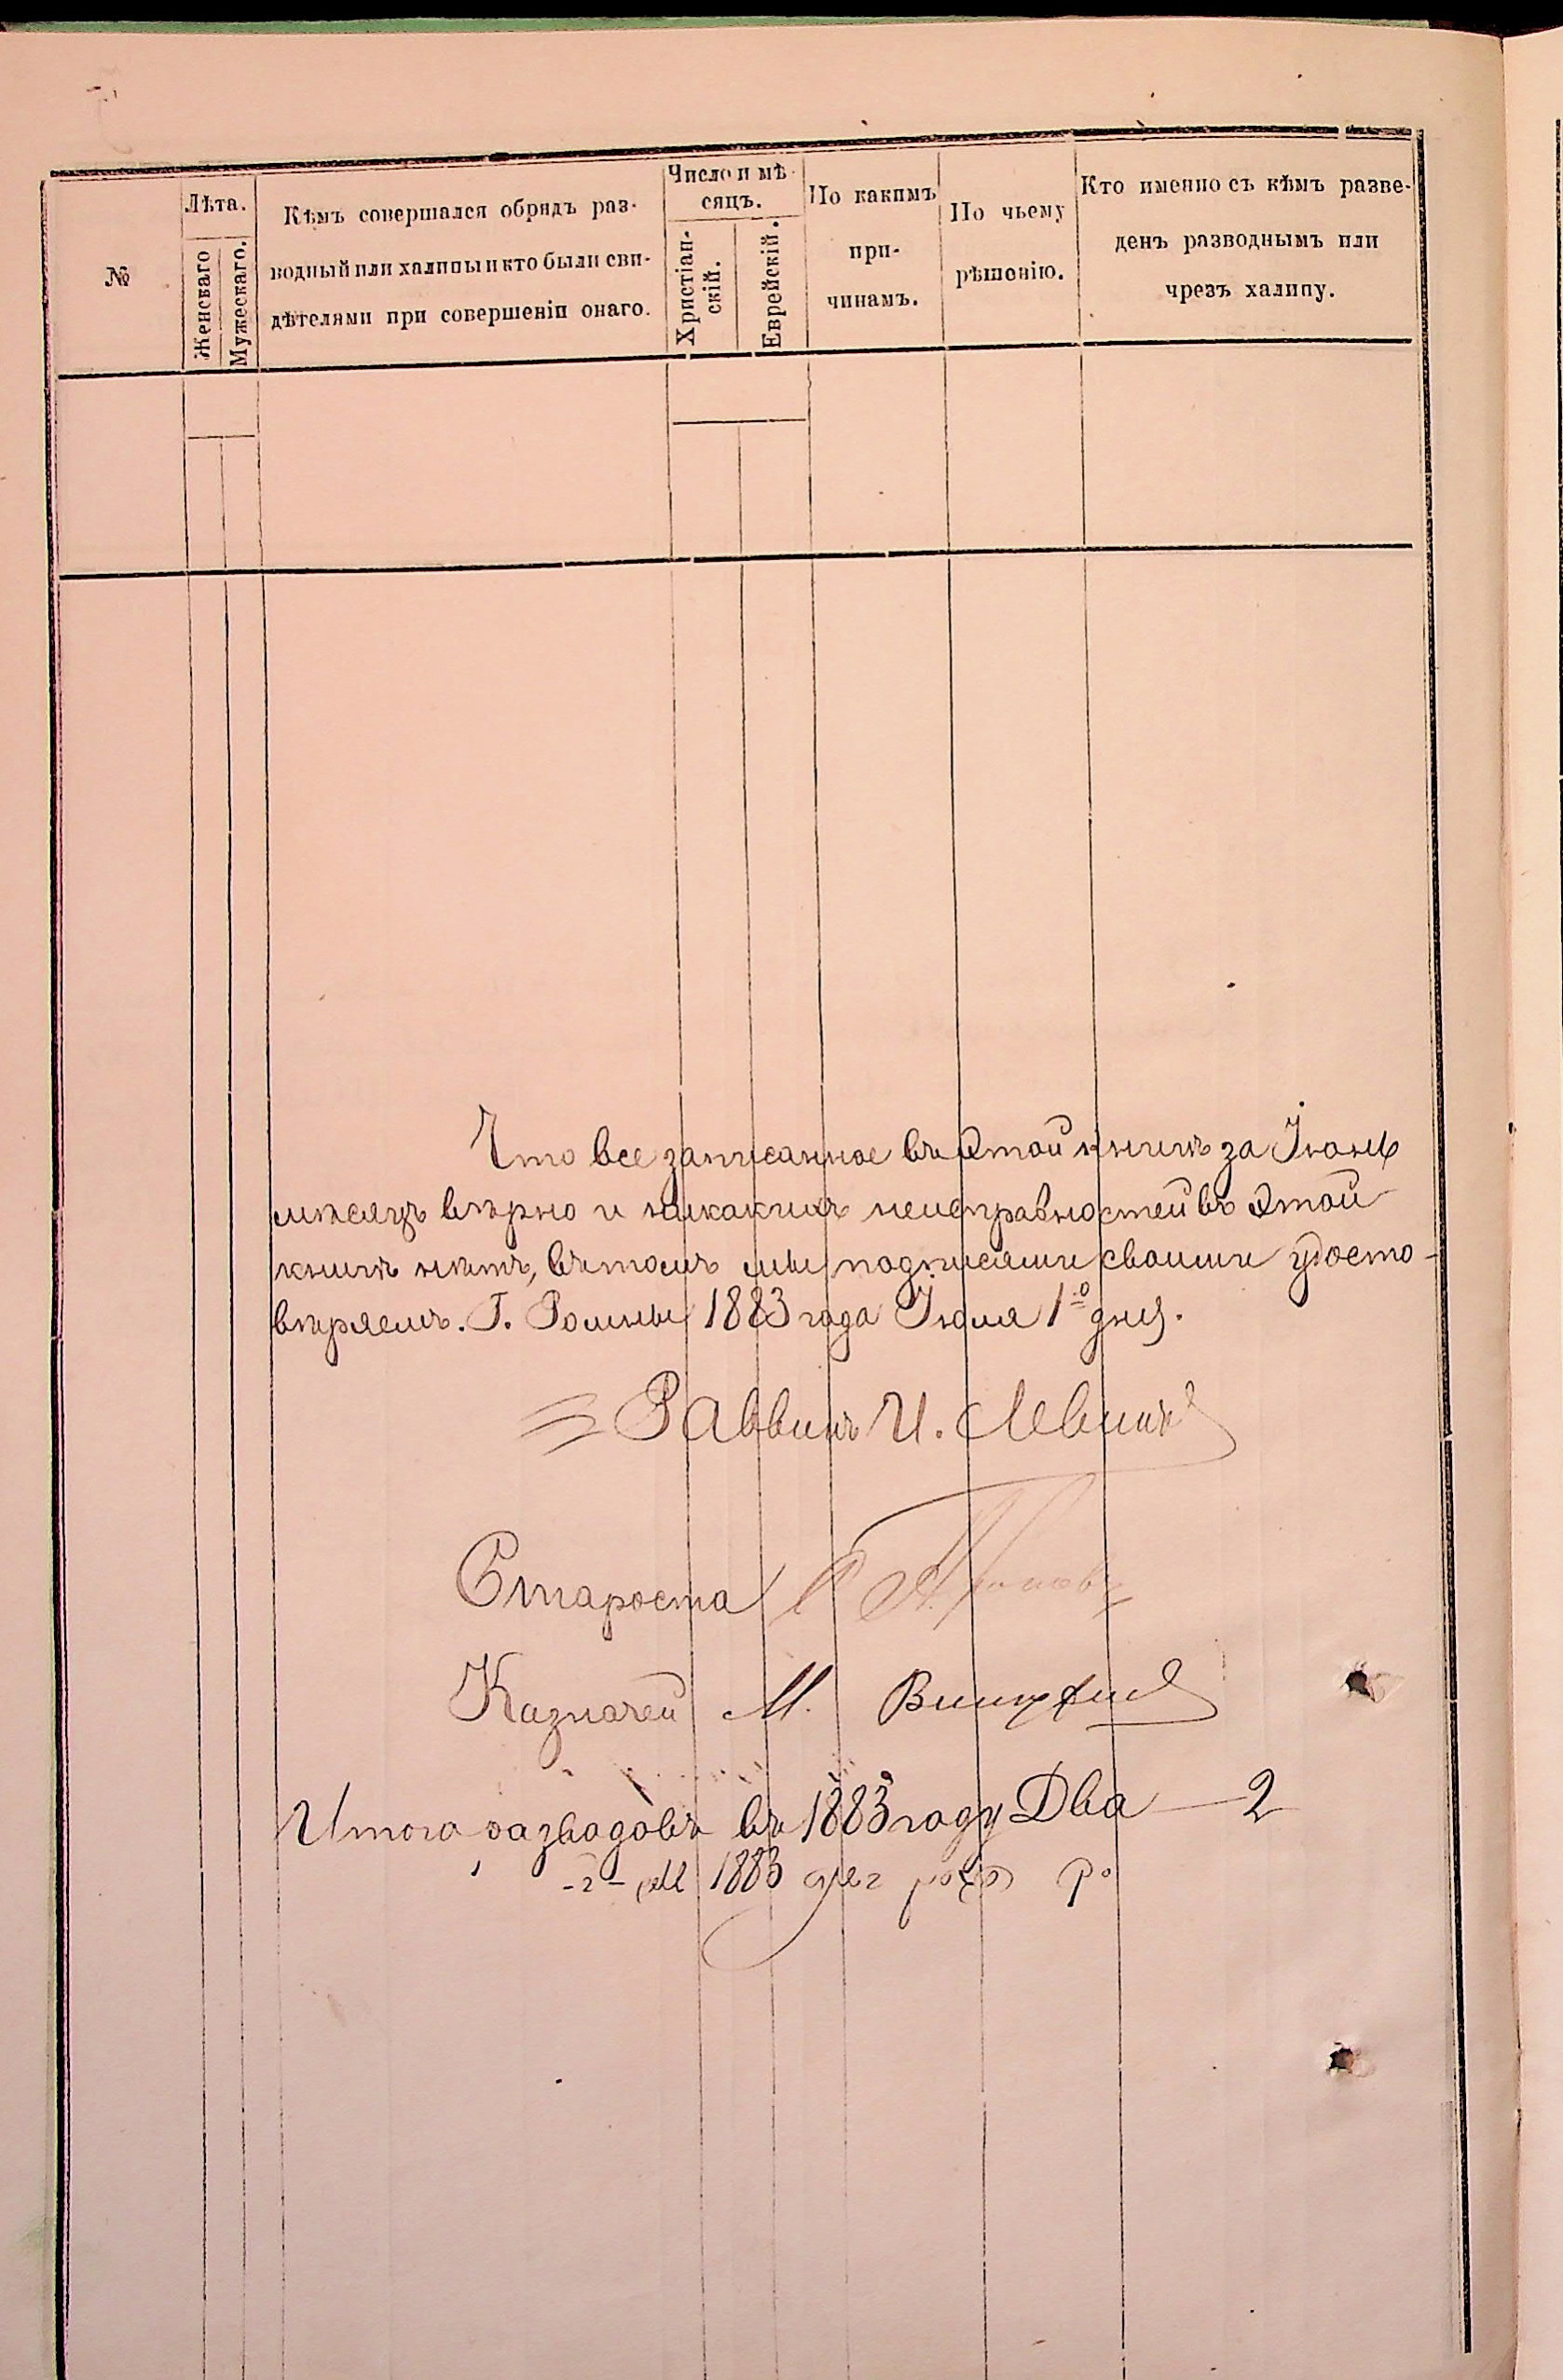 №
Лѣта.
Женскаго
Мужескаго.
Кѣмъ совершался обрядъ раз-
водный или халицы и кто были сви-
дѣтелями при совершеніи онаго.
Число и мѣ-
сяцъ.
Христіан-
скій.
Еврейскій.
По какимъ
при-
чинамъ.
По чьему
рѣшенію.
Кто именно съ кѣмъ разве-
денъ разводнымъ или
чрезъ халицу.
Что все записанное въ этой книгѣ за Іюнь
мѣсяцъ вѣрно и никакихъ неисправностей въ этой
книгѣ нѣтъ, въ томъ мы подписями своими удосто-
вѣряемъ. Г. Ромны 1883 года Іюля 1го дня.
Раввинъ И. Левинъ
Староста
Казначей М.
Итого разводовъ въ 1883 году Два — 2
-2- 1883